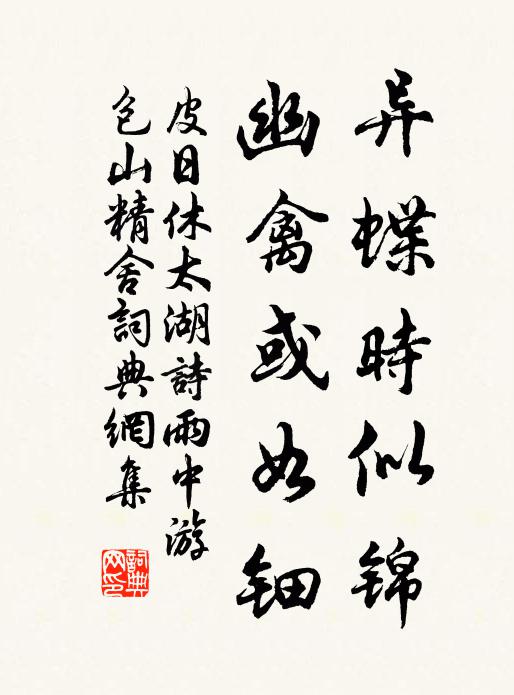 异蝶時似锦
幽禽或如钿
皮日休太湖詩雨中游
包山精舍詞典網集
詞典网印